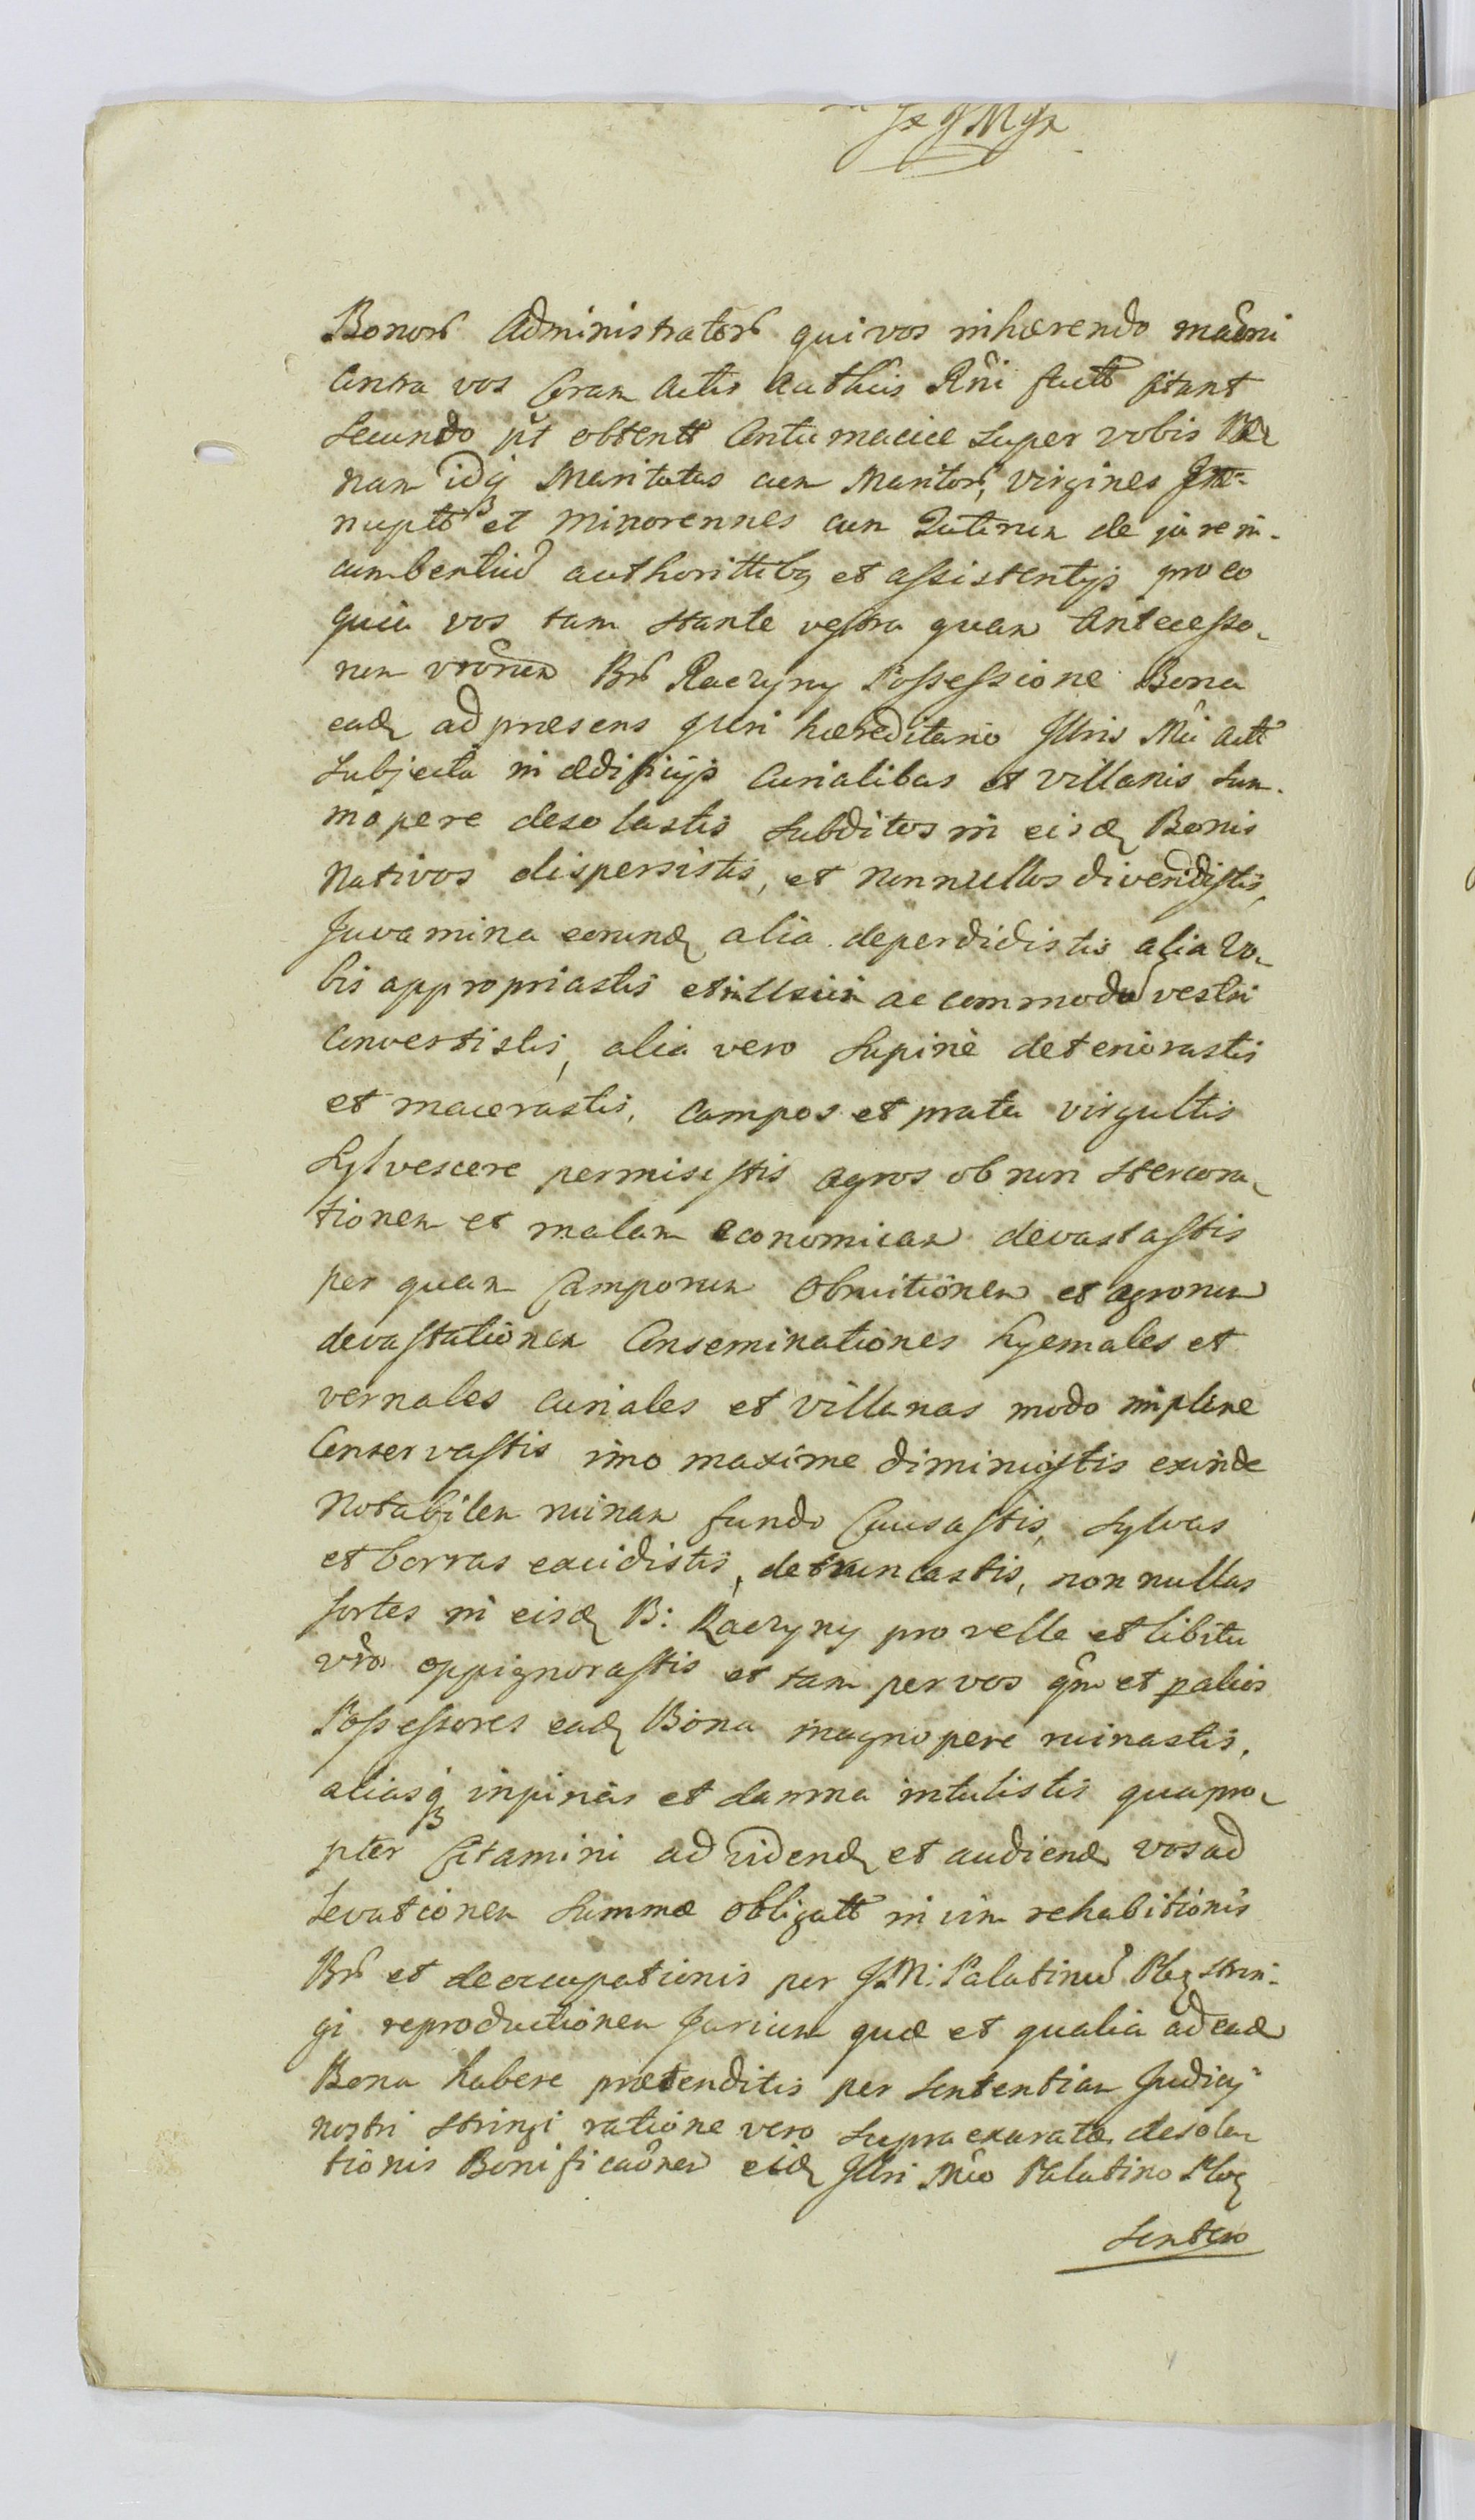 Bonorū Administratorū qui vos inhærendo mađni
Contra vos Coram Actis Authčis Rñi factæ citant
Secundo pt obtentæ Contumaciæ super vobis Pæ
nam idq Maritatas cum Maritorū, virgines Jn-
nuptasq et Minorennes cum Tutorum de jure in-
cumbentiū authorittibq et assistentijs pro eo
quia vos tam stante vestra quam Antecesso-
rum vrõrum Brū Raczyny Possessione Bona
eadq ad præsens Juri hæreditario Jllris Mči Actt
Subjecta in ædificijs Curialibus et Villanis sum-
mopere desolastis Subditos in eisdq Bonis
Nativos dispersistis, et nonnullos divendistis,
Juvamina eorundq alia deperdidistis alia Vo-
bis appropriastis et in Usum ac commodū vestri
Convertistis, alia vero Supine deteriorastis
et macerastis, Campos et prata virgultis
Sylvescere permisistis agros ob non Stercora-
tionem et malam economicam devastastis
per quam Camporum Obruitionem et agrorum
devastationem Conseminationes hyemales et
vernales Curiales et Villanas modo inplene
Conservastis imo maxime diminuistis exinde
Notabilem ruinam fundo Causastis, Sylvas
et borras excidistis, detruncastis, non nullas
Sortes in eisdq B: Raczyny pro velle et libitu
vrõ oppignorastis et tam per vos qm et p alios
Possessores eadq Bona magnopere ruinastis,
aliasq injurias et damna intulistis quapro-
pter Citamini ad videndq et audiendq vos ad
Levationem Summæ obligatt in vim rehabitionis
Brū et deoccupationis per J.M: Palatinū Plozq strin-
gi reproductionem Jurium quæ et qualia ad eadē
Bona habere prætenditis per Sententiam Judicij
nostri Stringi ratione vero supra exaratæ desola-
tionis Bonificaõnem eidq Jllri Mčo Palatino Plozq